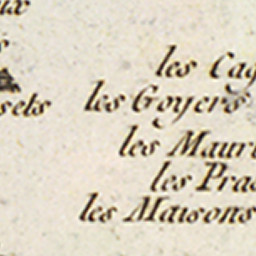 ux
s
les Cag
sets les Goyers
les Mauri
les Pras
les Maisons